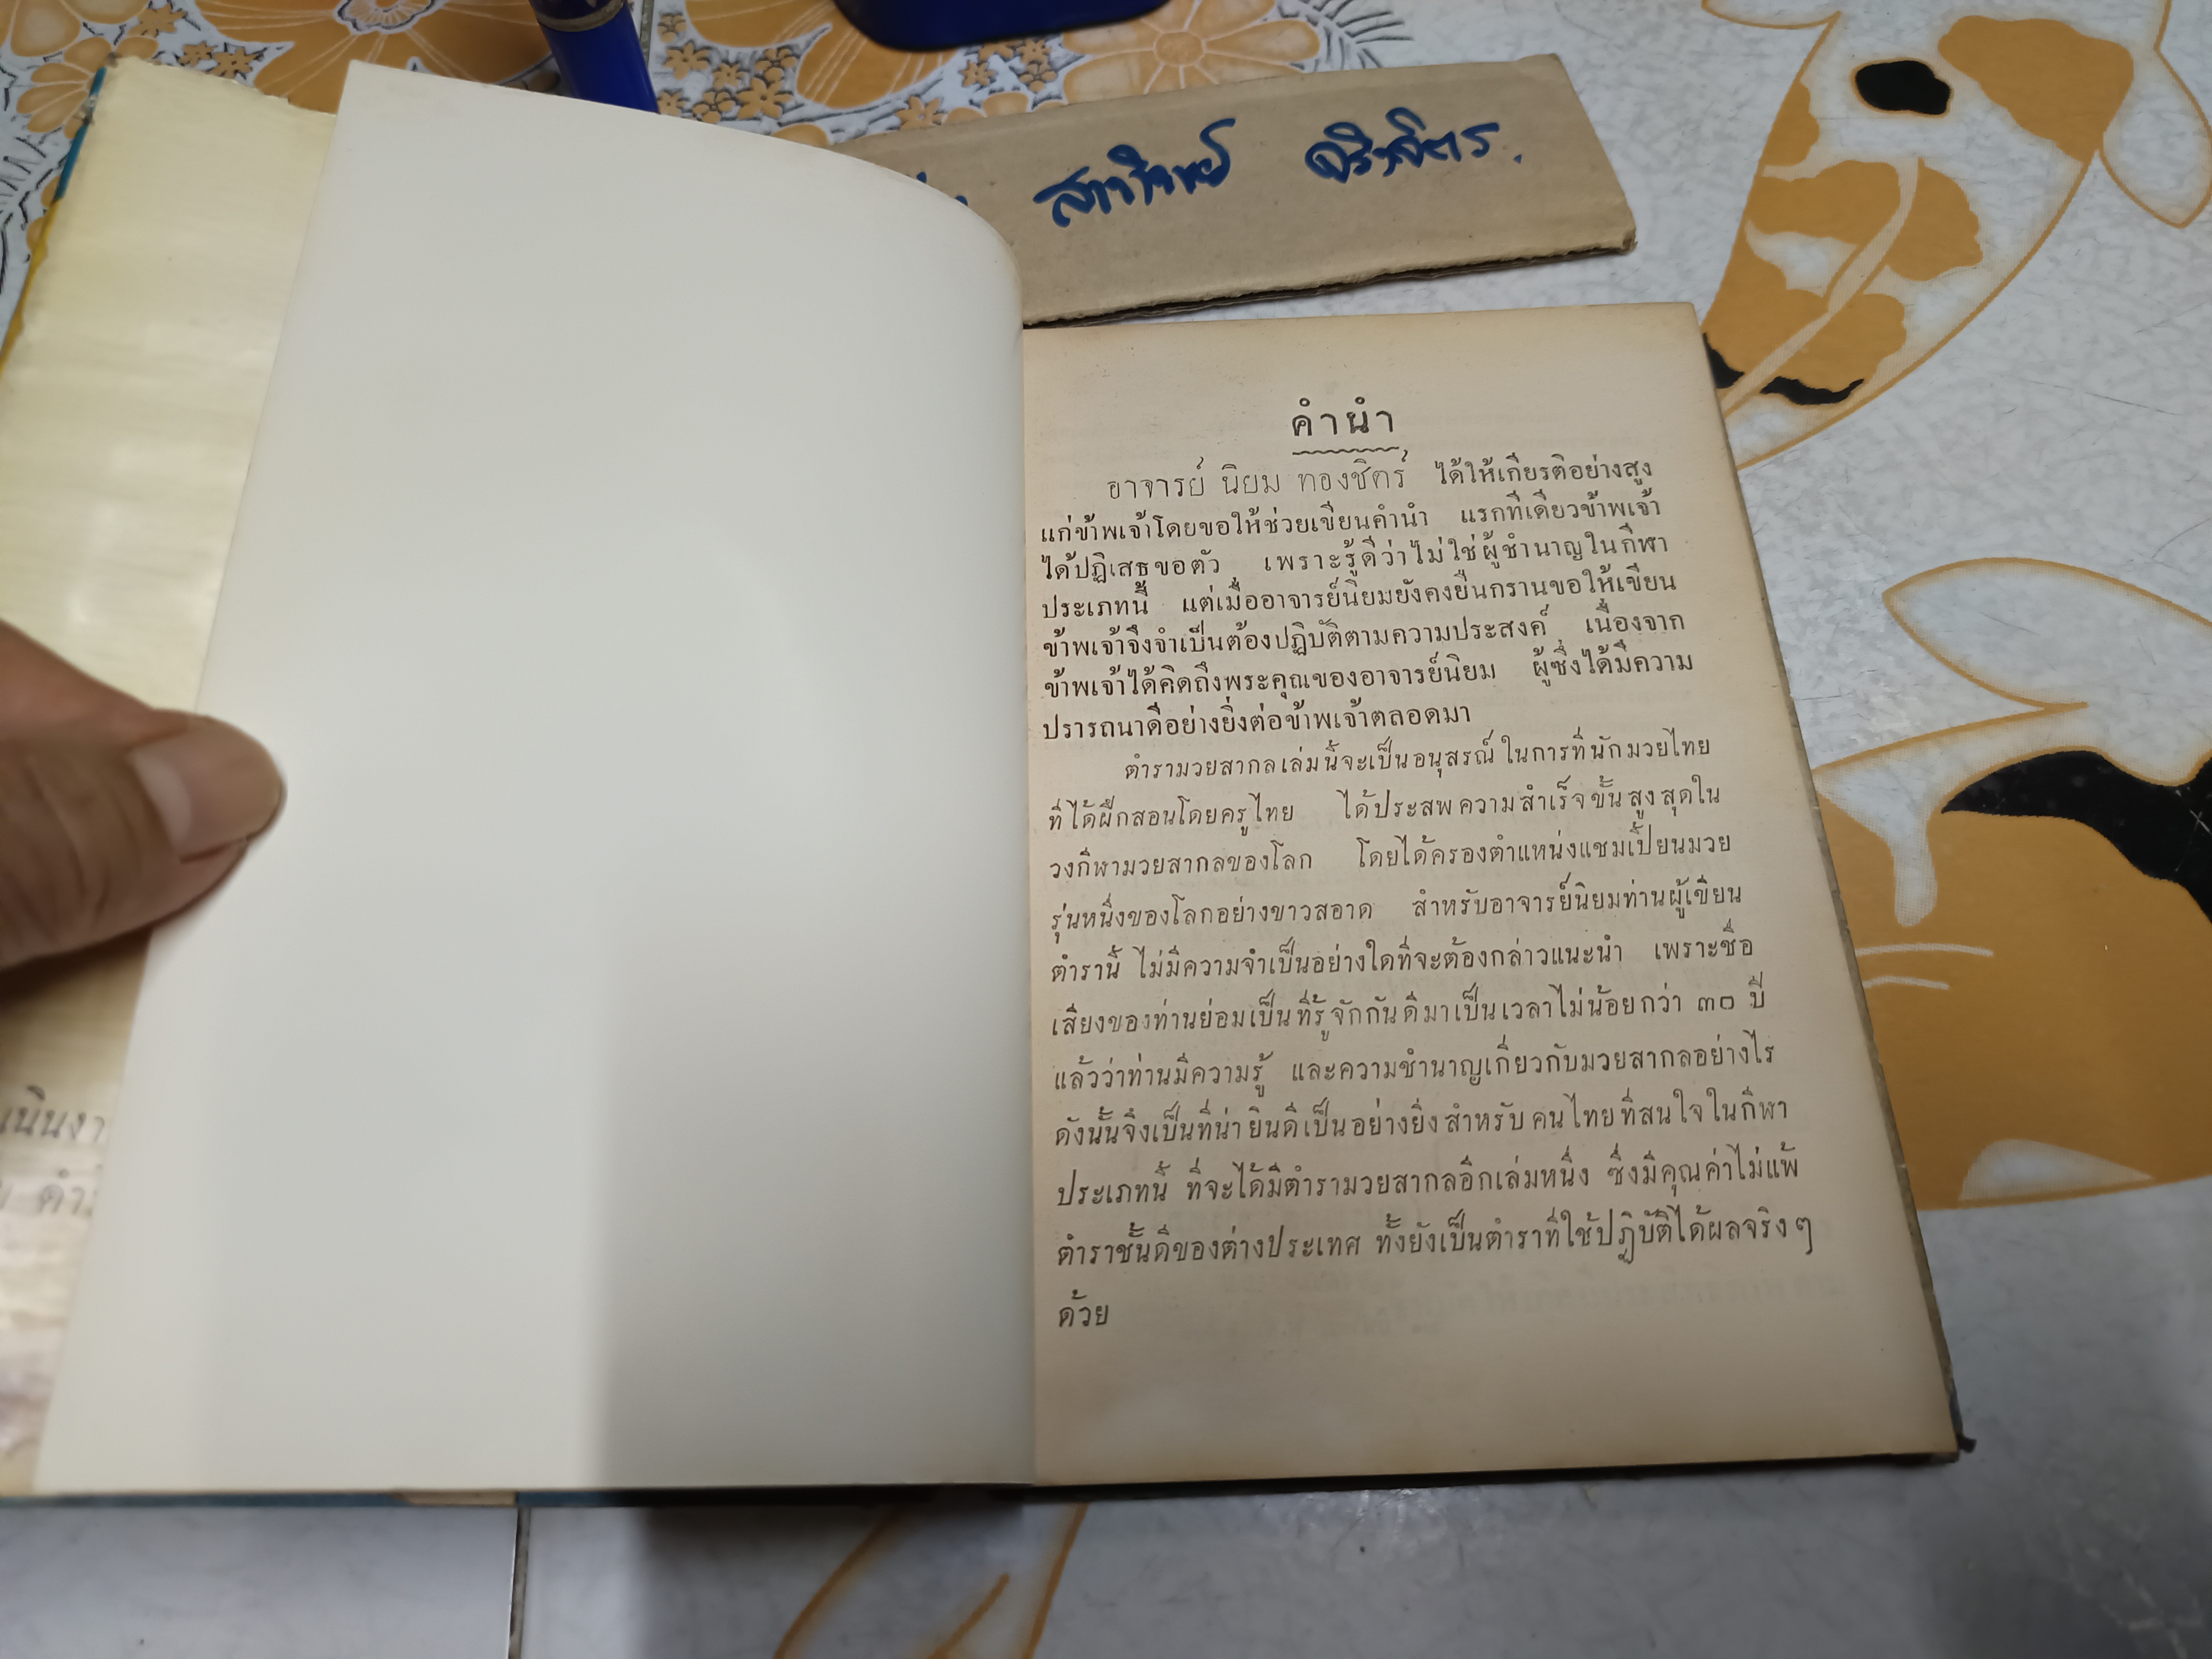 คำนำ
อาจารย์ นิยม ทองชิตร์ ได้ให้เกียรติอย่างสูง
แก่ข้าพเจ้าโดยขอให้ช่วยเขียนคำนำ แรกทีเดียวข้าพเจ้า
ได้ปฏิเสธขอตัว เพราะรู้ดีว่าไม่ใช่ผู้ชำนาญในกีฬา
ประเภทนี้ แต่เมื่ออาจารย์นิยมยังคงยืนกรานขอให้เขียน
ข้าพเจ้าจึงจำเป็นต้องปฏิบัติตามความประสงค์ เนื่องจาก
ข้าพเจ้าได้คิดถึงพระคุณของอาจารย์นิยม ผู้ซึ่งได้มีความ
ปรารถนาดีอย่างยิ่งต่อข้าพเจ้าตลอดมา
ตำรามวยสากลเล่มนี้จะเป็นอนุสรณ์ในการที่นักมวยไทย
ที่ได้ฝึกสอนโดยครูไทย ได้ประสพความสำเร็จขั้นสูงสุดใน
วงกีฬามวยสากลของโลก โดยได้ครองตำแหน่งแชมเปี้ยนมวย
รุ่นหนึ่งของโลกอย่างขาวสอาด สำหรับอาจารย์นิยมท่านผู้เขียน
ตำรานี้ ไม่มีความจำเป็นอย่างใดที่จะต้องกล่าวแนะนำ เพราะชื่อ
เสียงของท่านย่อมเป็นที่รู้จักกันดีมาเป็นเวลาไม่น้อยกว่า ๓๐ ปี
แล้วว่าท่านมีความรู้ และความชำนาญเกี่ยวกับมวยสากลอย่างไร
ดังนั้นจึงเป็นที่น่ายินดีเป็นอย่างยิ่งสำหรับคนไทยที่สนใจในกีฬา
ประเภทนี้ ที่จะได้มีตำรามวยสากลอีกเล่มหนึ่ง ซึ่งมีคุณค่าไม่แพ้
ตำราชั้นดีของต่างประเทศ ทั้งยังเป็นตำราที่ใช้ปฏิบัติได้ผลจริงๆ
ด้วย